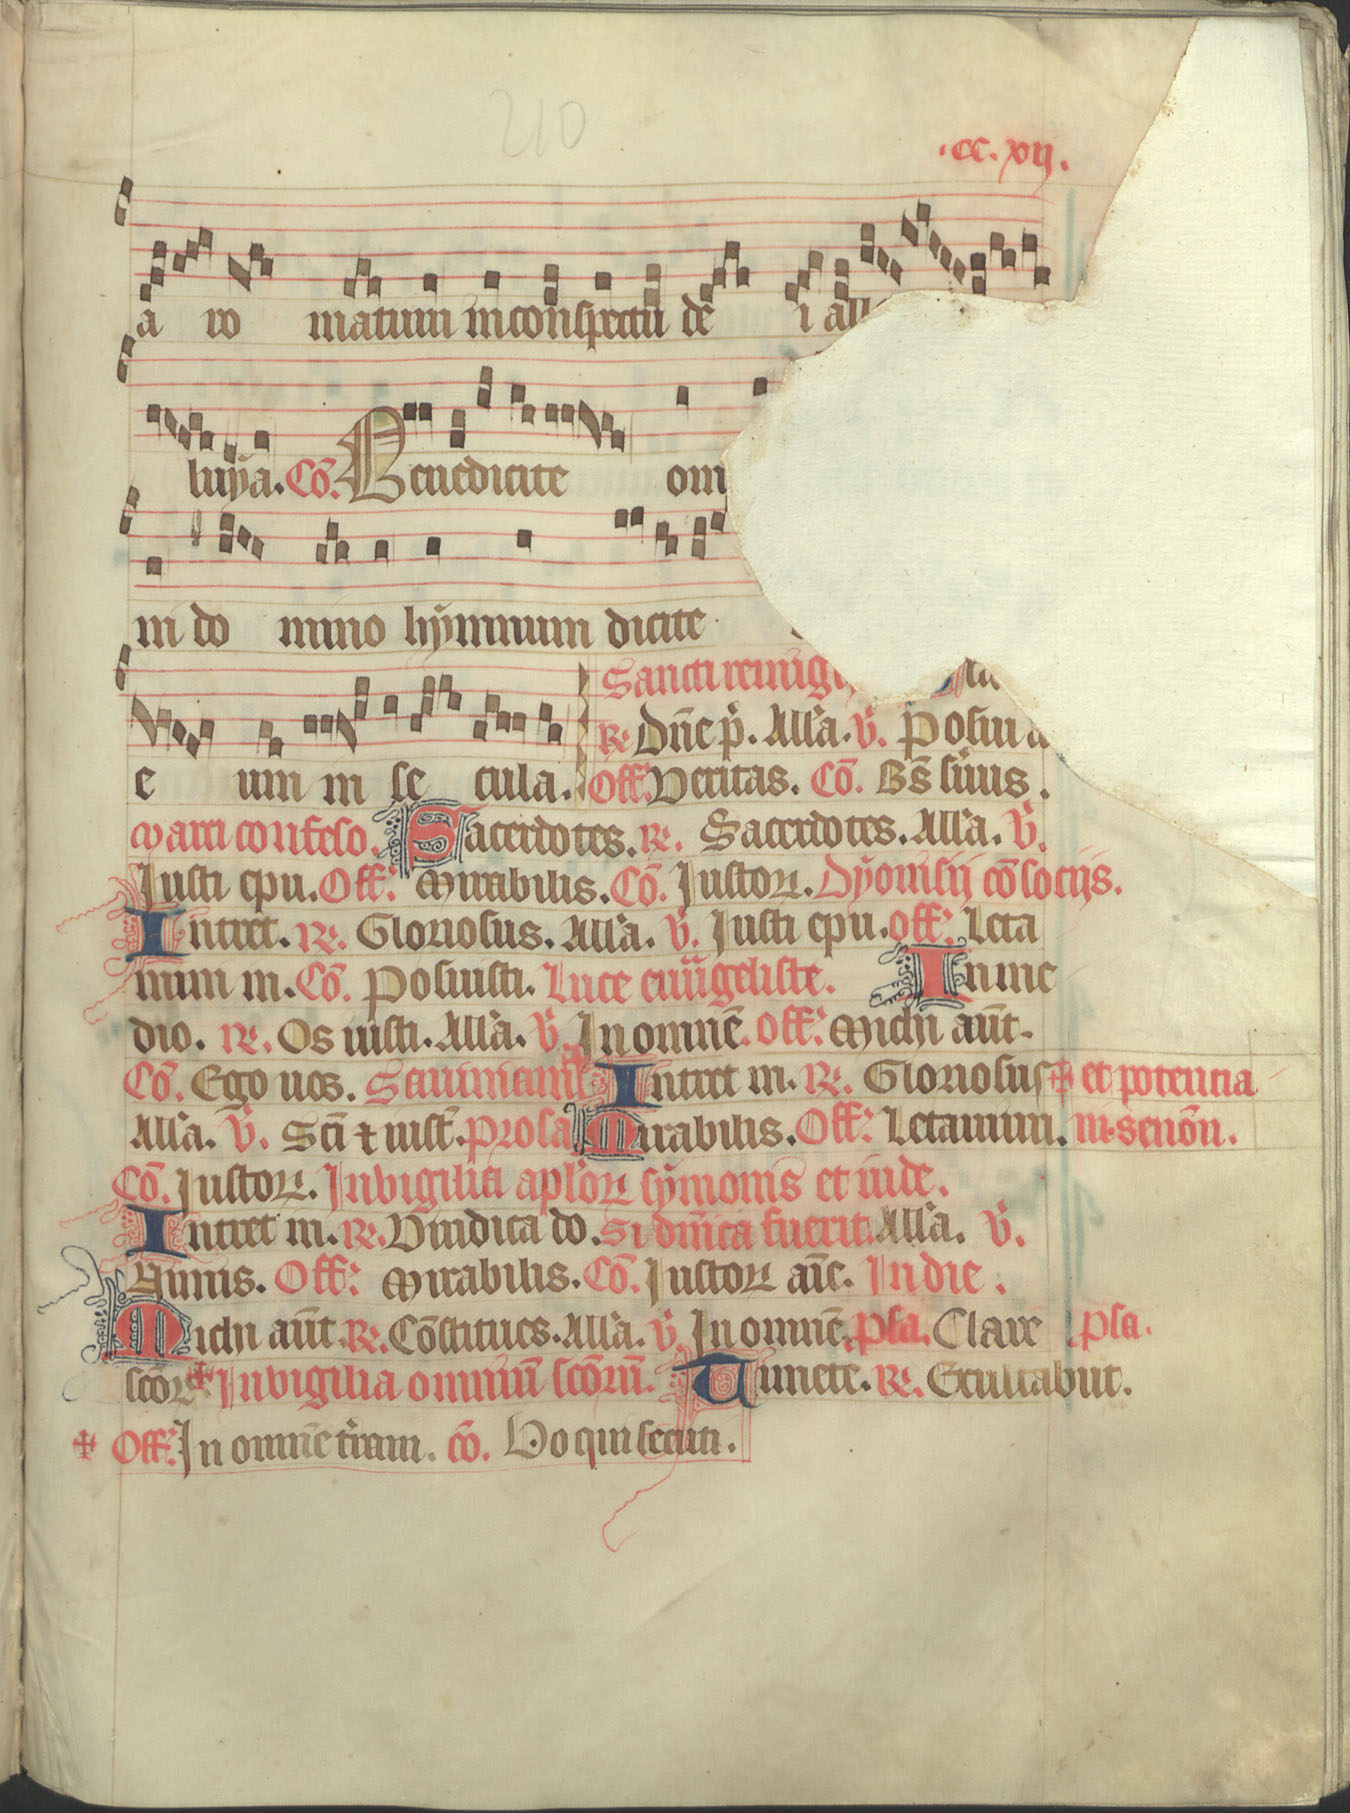 210
.cc.xij.
a ro matum in conspectu de i all
luya. Cō. Benedicite om
in do mino hymnum dicite
Sancti remigi
R. Dn̄e p̄. All'a. V. Posui a
e um in se cula. Off. Veritas. Cō. B̄s suus.
Marci confeso. Sacerdotes. R. Sacerdotes. All'a. V.
Justi epu. Off. Mirabilis. Cō. Justoꝝ. Dyonisij cōsocijs.
Intret. R. Gloriosus. All'a. V. Justi epu. off. Leta
mini in. Cō. Posuisti. Luce euu̅geliste. In me
dio. R. Os iusti. All'a. V. In omnē. Off. Michi aūt.
Cō. Ego uos. Intret in. R. Gloriosus ✠ et potencia
All'a. V. Sc̄i t̄ iust. Prosa Mirabilis. Off. Letamini. in senōn.
Cō. Justoꝝ. In vigilia apl'oꝝ symonis et iude.
Intret in. R. Vindica do. Si dn̄ica fuerit. All'a. V.
Nimis. Off. Mirabilis. Cō. Justoꝝ an̄e. In die.
Michi aūt. R. Cōstitues. All'a. V. In omnē. Psa. Clare psa.
scoꝝ ✠ In vigilia omniū scōrū. Timete. R. Exultabūt.
✠ Off. In omnē t̄ram. cō. Vo qui secuti.